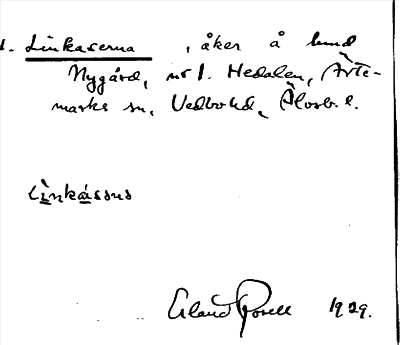 1. Linkaserna , åker å lund
Nygård, nr 1. Hedalen, Årte-
marks sn, Vedbo hd, Älvsb. l.
Li̱nka̱ssns
Erland Rosell 1929.